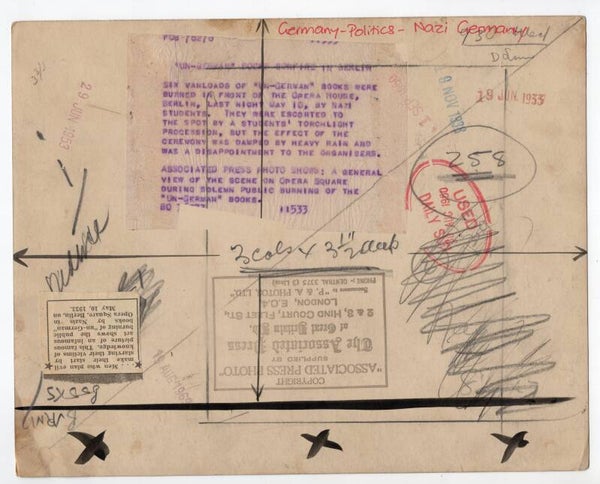 Germany-Politics-Nazi Germany
"UN-GERMAN" BOOKS BONFIRE IN BERLIN
SIX VANLOADS OF "UN-GERMAN" BOOKS WERE
BURNED IN FRONT OF THE OPERA HOUSE,
BERLIN, LAST NIGHT MAY 10, BY NAZI
STUDENTS. THEY WERE ESCORTED TO
THE SPOT BY A STUDENTS' TORCHLIGHT
PROCESSION, BUT THE EFFECT OF THE
CEREMONY WAS DAMPED BY HEAVY RAIN AND
WAS A DISAPPOINTMENT TO THE ORGANISERS.
ASSOCIATED PRESS PHOTO SHOWS: A GENERAL
VIEW OF THE SCENE ON OPERA SQUARE
DURING SOLEMN PUBLIC BURNING OF THE
"UN-GERMAN" BOOKS.
11533
29 JUN 1953
19 JUN 1933
258
USED
3 cols x 3 1/2 deep
COPYRIGHT
"ASSOCIATED PRESS PHOTO"
SUPPLIED BY
The Associated Press
of Great Britain Ld.
2 & 3, HIND COURT, FLEET ST.,
LONDON, E.C.4
Successors to "P. & A. PHOTOS, LTD."
PHONE :- CENTRAL 3775 (5 Lines)
. . . Men who plan evil
make their start by
starting their victims of
knowledge. This famous
picture of an infamous
art shows the public
burning of "un-German"
books by Nazis in
Opera Square, Berlin, on
May 10, 1933.
BOOKS